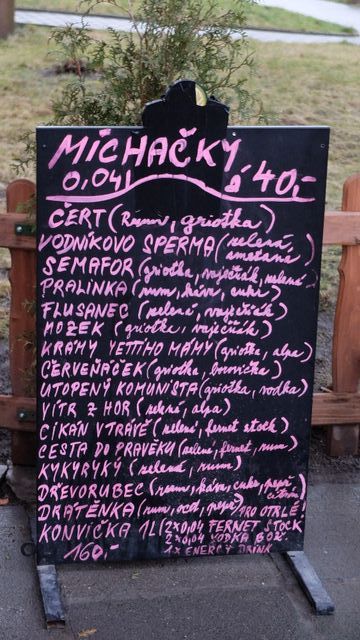 MÍCHAČKY
0,04l á 40,-
ČERT (Rum, griotka)
VODNÍKOVO SPERMA (zelená, smetana)
SEMAFOR (griotka, vaječňák, zelená)
PRALINKA (rum, káva, cukr)
FLUSANEC (zelená, vaječňák)
MOZEK (griotka, vaječňák)
KRÁMY YETTIHO MÁMY (griotka, alpa)
ČERVEŇÁČEK (griotka, borovička)
UTOPENÝ KOMUNISTA (griotka, vodka)
VÍTR Z HOR (alpa)
CIKÁN V TRÁVĚ (zelená, fernet stock)
CESTA DO PRAVĚKU (zelená, fernet, rum)
KYKYRYKÝ (zelená, rum)
DŘEVORUBEC (rum, káva, cukr, pepř citron)
DRÁTĚNKA (rum, ocet, pepř) PRO OTRLÉ!
KONVIČKA 1L (2x0,04 FERNET STOCK
160,- 2x0,04 VODKA BOŽ.
1x ENERGY DRINK